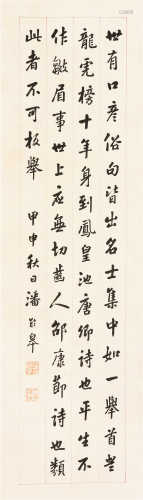 世有口彥俗句皆出名士集中如一舉首登
龍虎榜十年身到鳳皇池唐卿詩也平生不
作皺眉事世上应無切齒人邵康節詩也類
此者不可枚舉 甲申秋日潘齡皋